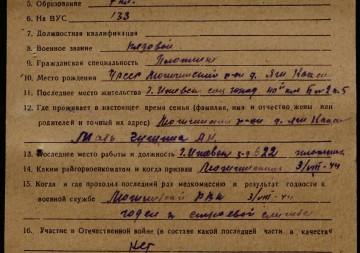 5. Образование 7 кл.
6. На ВУС 133
7. Должностная квалификация
8. Военное звание рядовой
9. Гражданская специальность Плотник
10. Место рождения р-он д.
11. Последнее место жительства г. Ижевск
12. Где проживает в настоящее время семья (фамилия, имя и отчество жены или
родителей и точный их адрес) р-он д.
Мать
13. Последнее место работы и должность г. Ижевск з-д 622 плотник
14. Каким райгорвоенкоматом и когда призван 3/VIII-44
15. Когда и где проходил последний раз медкомиссию и результат годности к
военной службе РВК 3/VIII-44
годен к строевой службе
16. Участие в Отечественной войне (в составе какой последней части и качестве)
Нет